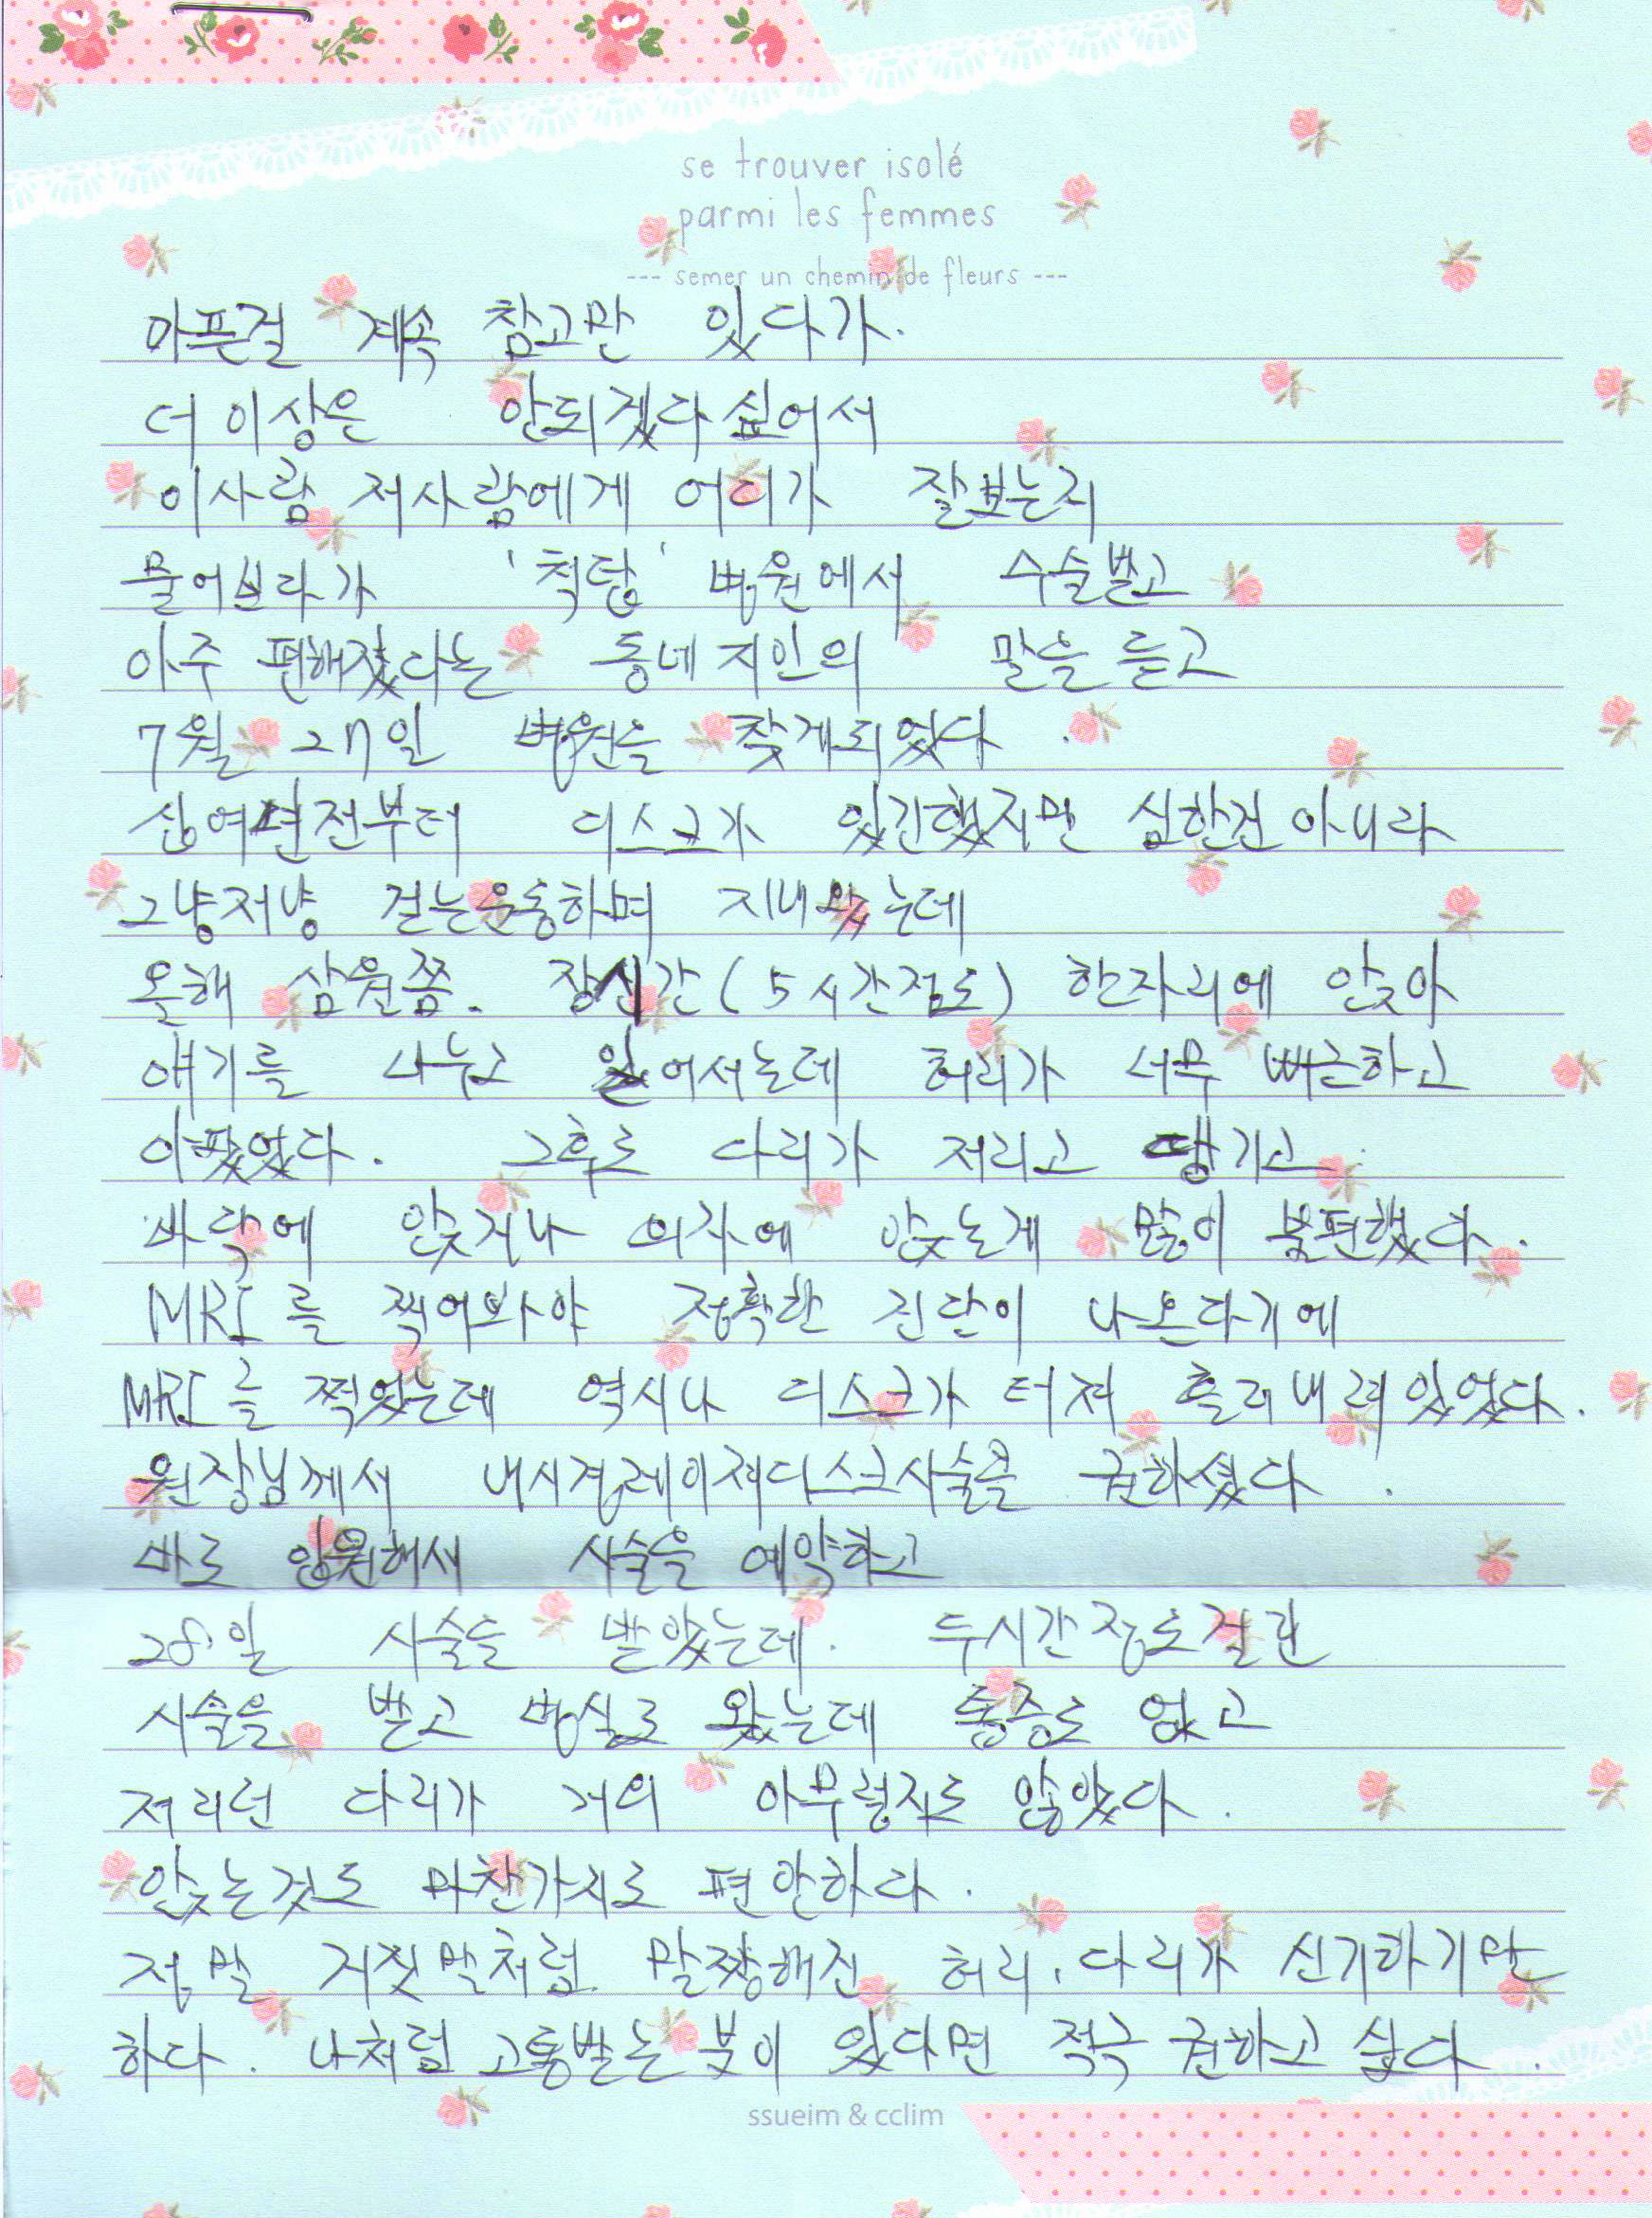 se trouver isolé
parmi les femmes
--- semer un chemin de fleurs ---
아픈걸 계속 참고만 있다가.
더 이상은 안되겠다 싶어서
이사람 저사람에게 어디가 잘보는지
물어보다가 '척탑' 병원에서 수술받고
아주 편해졌다는 동네 지인의 말을 듣고
7월 27일 병원을 찾게되었다.
십여년전부터 디스크가 있긴했지만 심한건 아니라
그냥저냥 걷는운동하며 지내왔는데
올해 삼월쯤. 장시간(5시간정도) 한자리에 앉아
얘기를 나누고 일어서는데 허리가 너무 뻐근하고
아팠었다. 그후로 다리가 저리고 땡기고
바닥에 앉거나 의자에 앉는게 많이 불편했다.
MRI를 찍어봐야 정확한 진단이 나온다기에
MRI를 찍었는데 역시나 디스크가 터져 흘러내려있었다.
원장님께서 내시경레이저디스크시술을 권하셨다.
바로 입원해서 시술을 예약하고
28일 시술을 받았는데. 두시간정도걸린
시술을 받고 병실로 왔는데 통증도 없고
저리던 다리가 거의 아무렇지도 않았다.
앉는것도 마찬가지로 편안하다.
정말 거짓말처럼 말짱해진 허리, 다리가 신기하기만
하다. 나처럼 고통받는 분이 있다면 적극 권하고 싶다.
ssueim & cclim